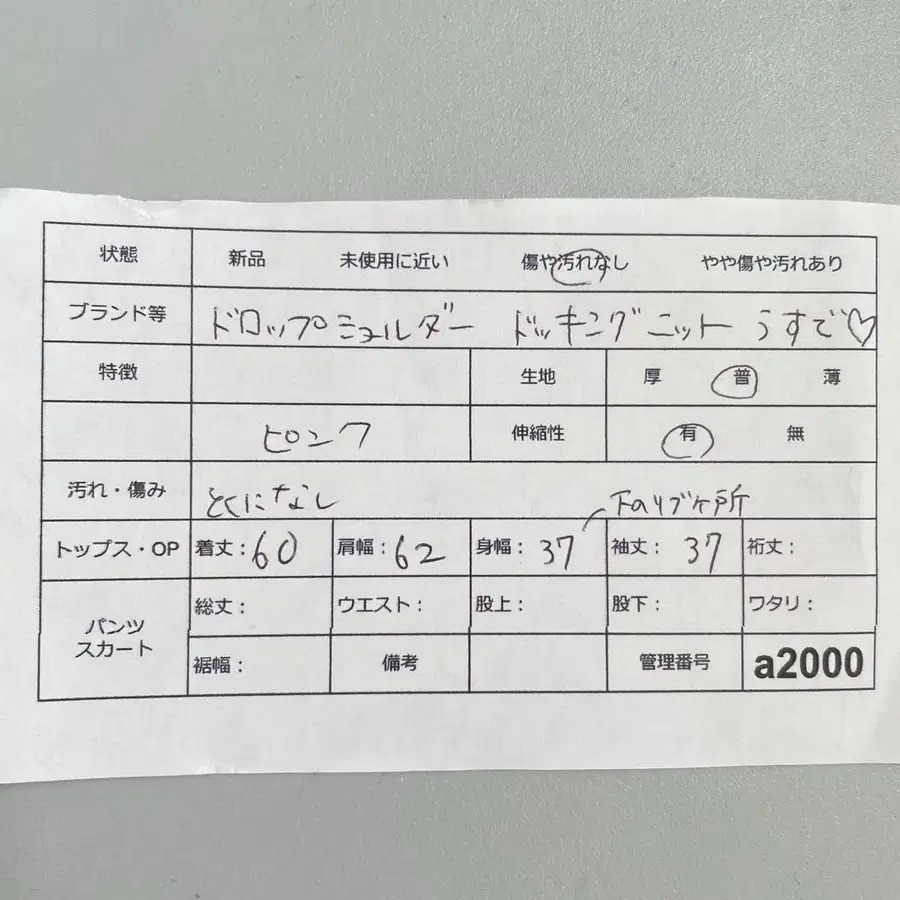 状態 新品 未使用に近い 傷や汚れなし やや傷や汚れあり
ブランド等 ドロップショルダー ドッキングニット うすで♡
特徴 生地 厚 普 薄
ピンク 伸縮性 有 無
汚れ・傷み とくになし 下のリブヶ所
トップス・OP 着丈：60 肩幅：62 身幅：37 袖丈：37 裄丈：
パンツ スカート 総丈： ウエスト： 股上： 股下： ワタリ：
裾幅： 備考 管理番号 a2000